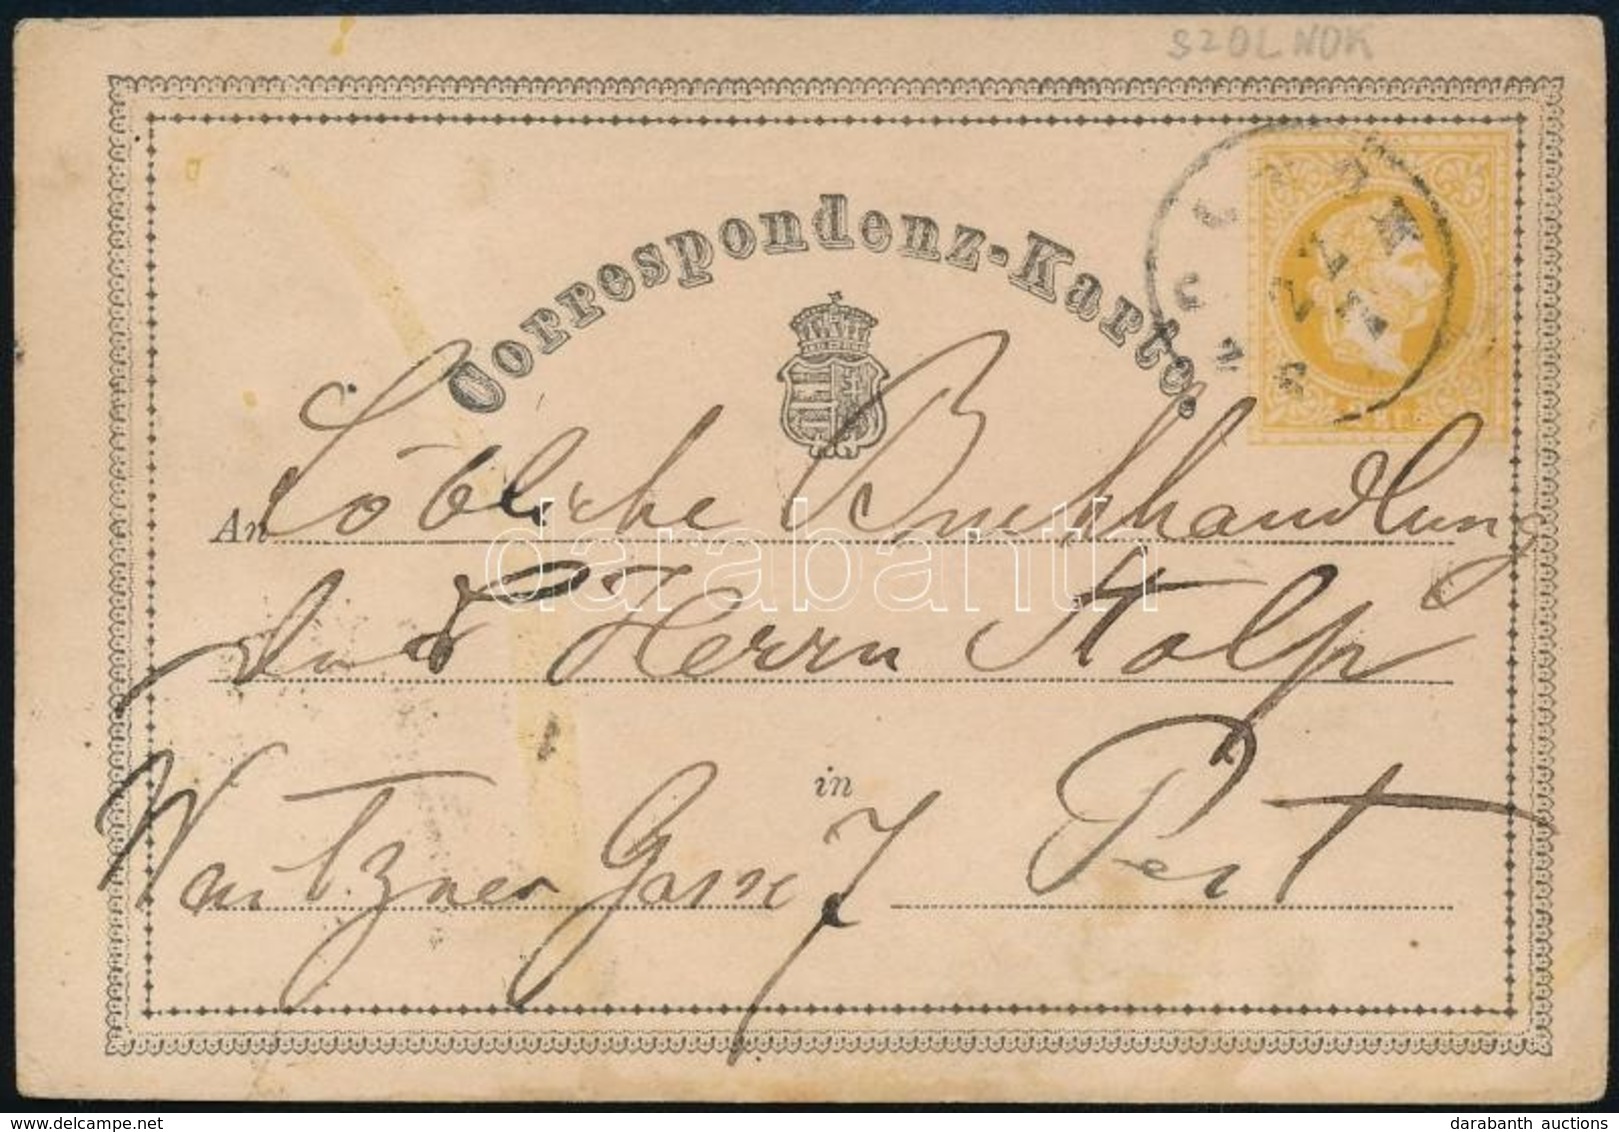 SZOLNOK
Correspondenz-Karte.
An Löbliche Buchhandlung
des Herrn Stolp
in
Waitzner Gasse 7 Pest
darabanth
darabanth-auctions
delcampe.net